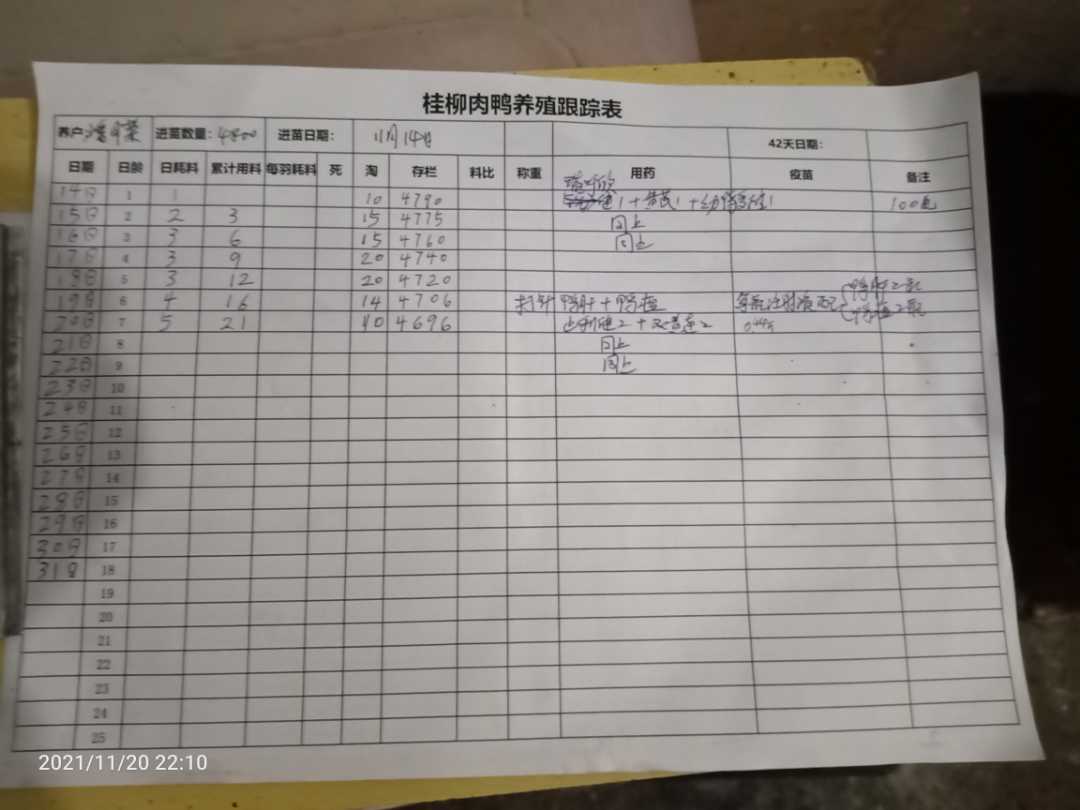 桂柳肉鸭养殖跟踪表
养户: 进苗数量: 4800 进苗日期: 11月14日 42天日期:
日期 日龄 日耗料 累计用料 每羽耗料 死 淘 存栏 料比 称重 用药 疫苗 备注
14日 1 1 10 4790 1+黄芪1+ 100包
15日 2 2 3 15 4775 同上
16日 3 3 6 15 4760 同上
17日 4 3 9 20 4740
18日 5 3 12 20 4720
19日 6 4 16 14 4706 打针 鸭肝+鸭瘟 每瓶注射液配
20日 7 5 21 10 4696 2+双黄连2
21日 8 同上
22日 9 同上
23日 10
24日 11
25日 12
26日 13
27日 14
28日 15
29日 16
30日 17
31日 18
19
20
21
22
23
24
25
2021/11/20 22:10